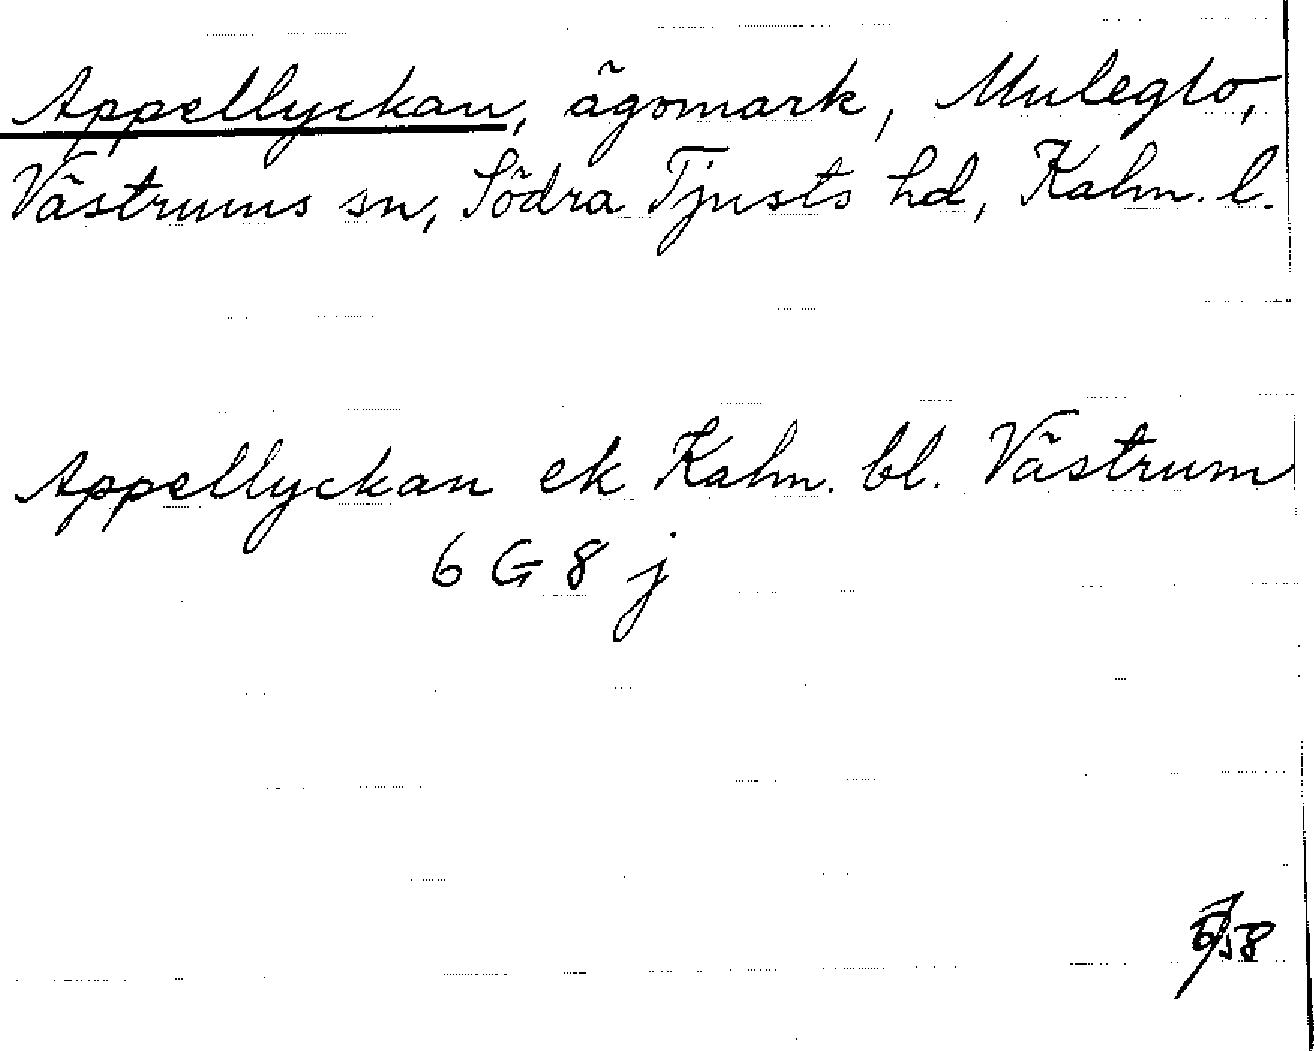 Appellyckan, ägomark, Mulegto,
Västrums sn, Södra Tjusts hd, Kalm. l.
Appellyckan ek Kalm. bl. Västrum
6 G 8 j